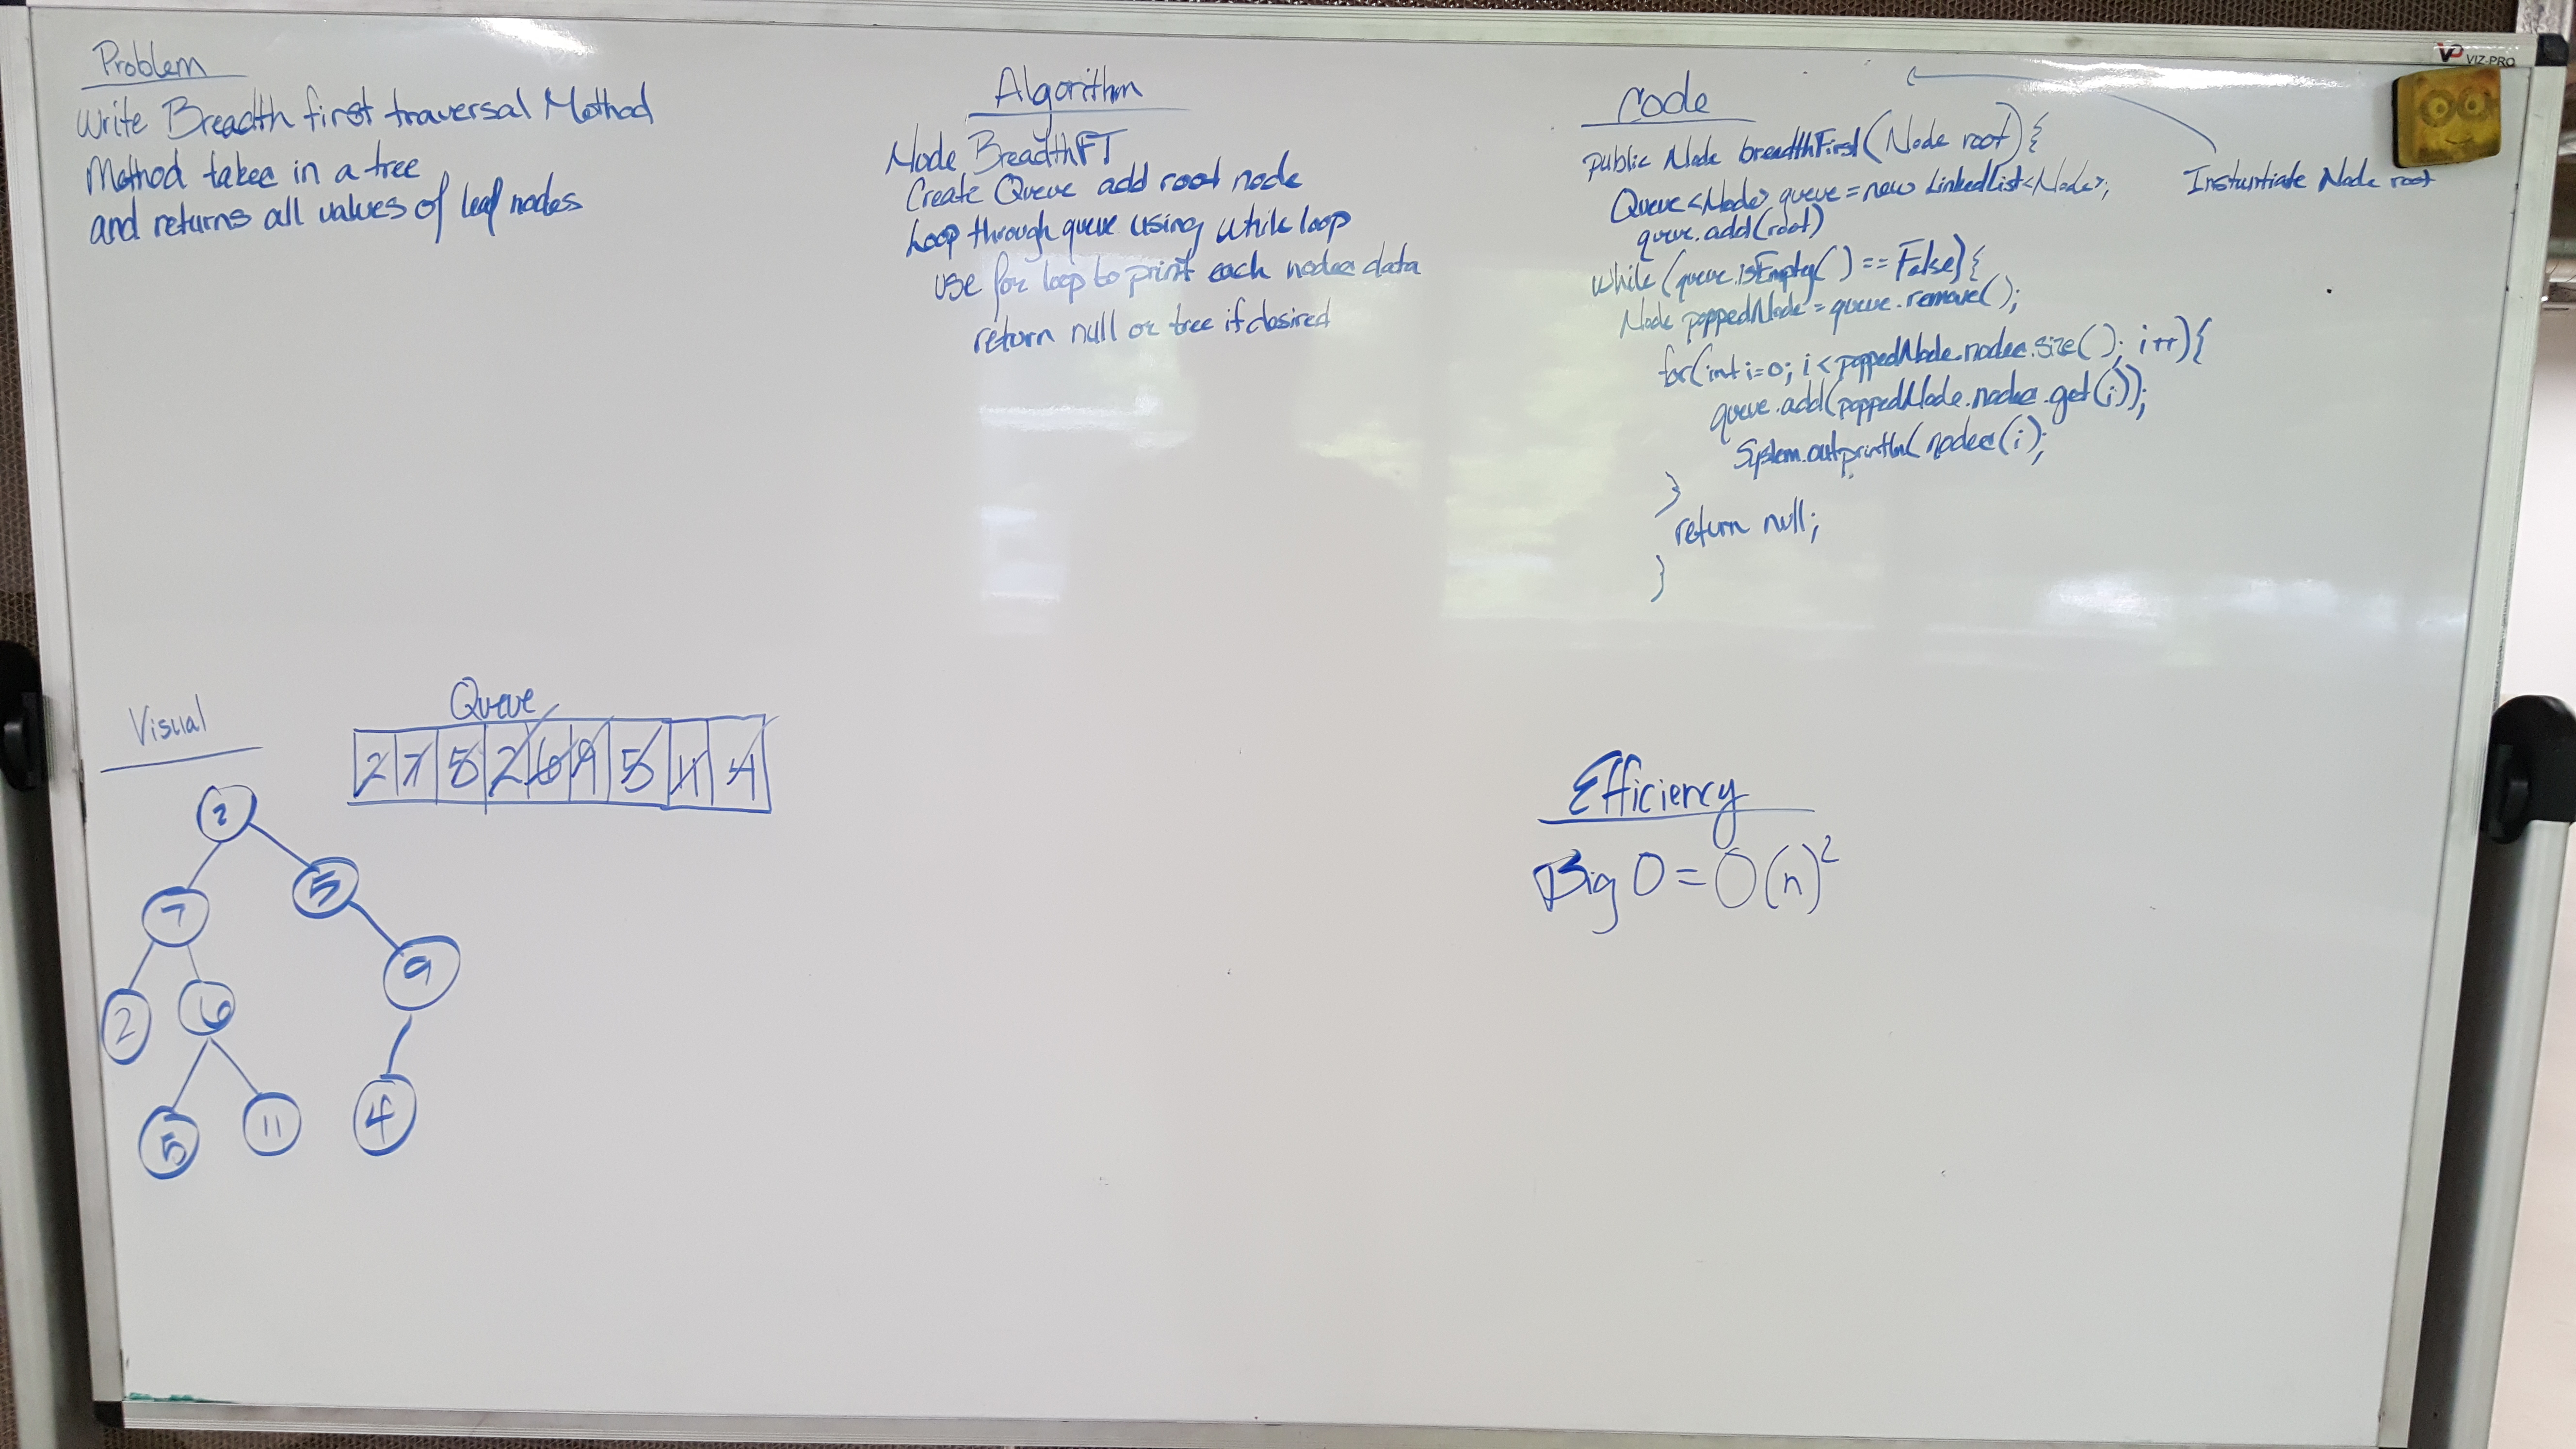 Problem
Write Breadth first traversal Method
Method takes in a tree
and returns all values of leaf nodes
Algorithm
Node BreadthFT
Create Queue add root node
Loop through queue using while loop
use for loop to print each nodes data
return null or tree if desired
Code
public Node breadthFirst(Node root){
Queue<Node> queue = new LinkedList<Node>;
queue.add(root)
while (queue.isEmpty() == False){
Node poppedNode = queue.remove();
for(int i=0; i < poppedNode.nodes.size(); i++){
queue.add(poppedNode.nodes.get(i));
System.out.println(nodes(i);
}
return null;
}
Instantiate Node root
VIZ-PRO
Visual
Queue
2 7 5 2 6 9 5 11 4
2
7 5
2 6 9
5 11 4
Efficiency
Big O = O(n)²